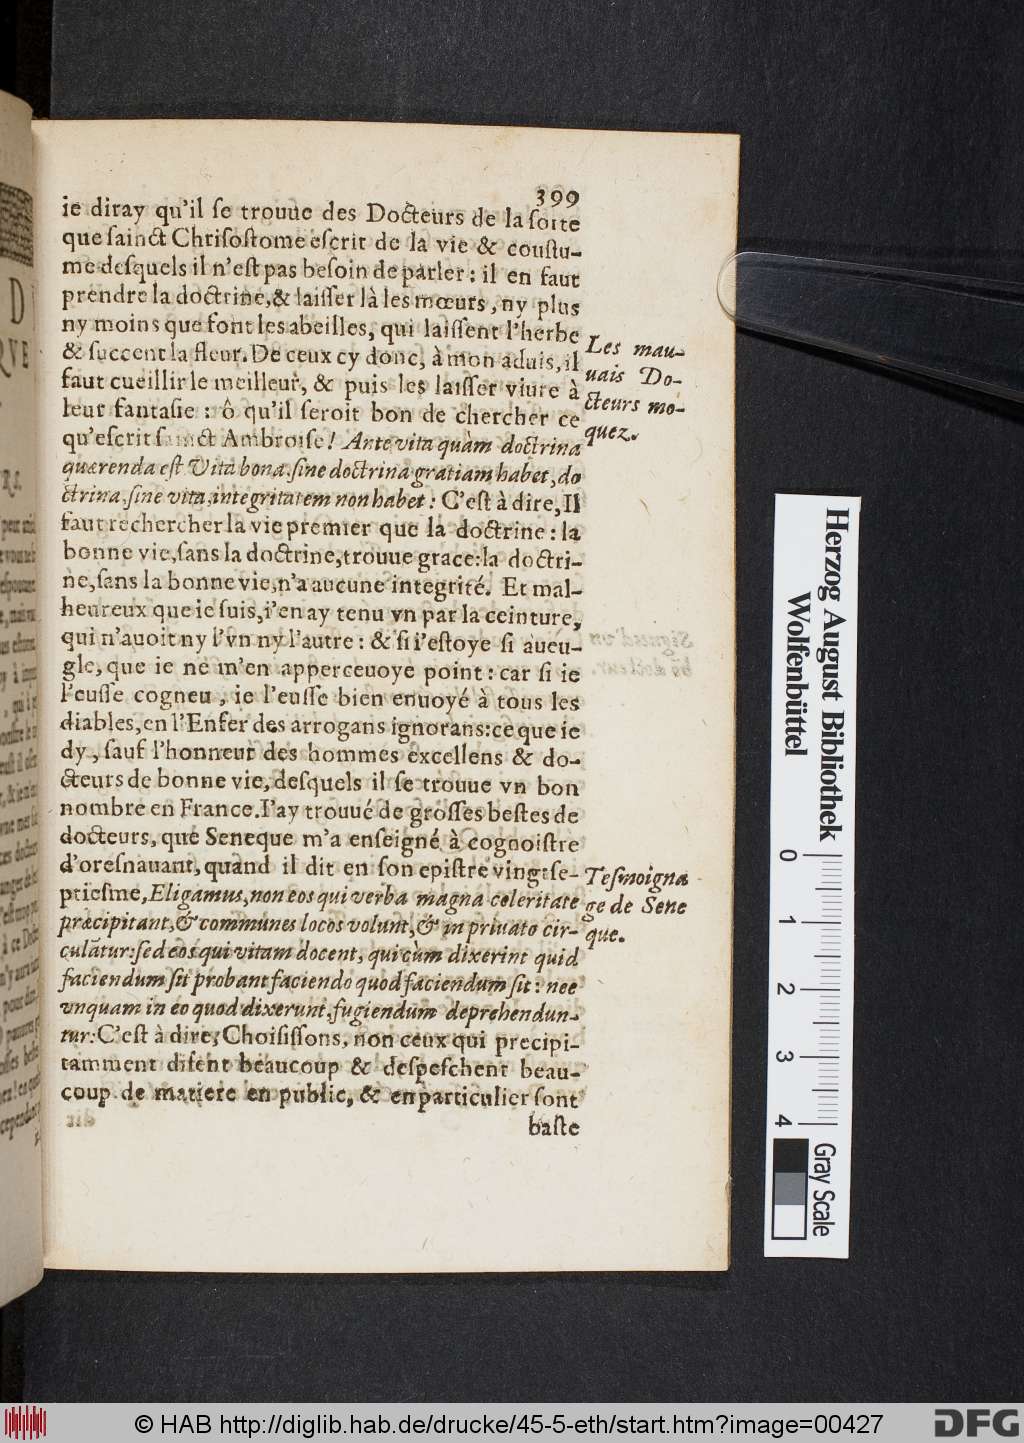 399
ie diray qu'il se trouue des Docteurs de la sorte
que sainct Chrisostome escrit de la vie & coustu-
me desquels il n'est pas besoin de parler : il en faut
prendre la doctrine, & laisser là les mœurs, ny plus
ny moins que font les abeilles, qui laissent l'herbe
& succent la fleur. De ceux cy donc, à mon aduis, il
faut cueillir le meilleur, & puis les laisser viure à
leur fantasie : ô qu'il seroit bon de chercher ce
qu'escrit sainct Ambroise ! Ante vita quàm doctrina
quærenda est Vita bona, sine doctrina gratiam habet, do
ctrina, sine vita, integritatem non habet : C'est à dire, Il
faut rechercher la vie premier que la doctrine : la
bonne vie, sans la doctrine, trouue grace: la doctri-
ne, sans la bonne vie, n'a aucune integrité. Et mal-
heureux que ie suis, i'en ay tenu vn par la ceinture,
qui n'auoit ny l'vn ny l'autre : & si i'estoye si aueu-
gle, que ie ne m'en apperceuoye point : car si ie
l'eusse cogneu, ie l'eusse bien enuoyé à tous les
diables, en l'Enfer des arrogans ignorans: ce que ie
dy, sauf l'honneur des hommes excellens & do-
cteurs de bonne vie, desquels il se trouue vn bon
nombre en France. I'ay trouué de grosses bestes de
docteurs, que Seneque m'a enseigné à cognoistre
d'oresnauant, quand il dit en son epistre vingtse-
ptiesme, Eligamus, non eos qui verba magna celeritate
præcipitant, & communes locos volunt, & in priuato cir-
culātur: sed eos qui vitam docent, qui cùm dixerint quid
faciendum sit probant faciendo quod faciendum sit : nec
vnquam in eo quod dixerunt, fugiendum deprehendun-
tur: C'est à dire, Choisissons, non ceux qui precipi-
tamment disent beaucoup & despeschent beau-
coup de matiere en public, & en particulier sont
baste
Les mau-
uais Do-
cteurs mo-
quez.
Tesmoigna
ge de Sene
que.
Herzog August Bibliothek
Wolfenbüttel
0
1
2
3
4
Gray Scale
© HAB http://diglib.hab.de/drucke/45-5-eth/start.htm?image=00427
DFG